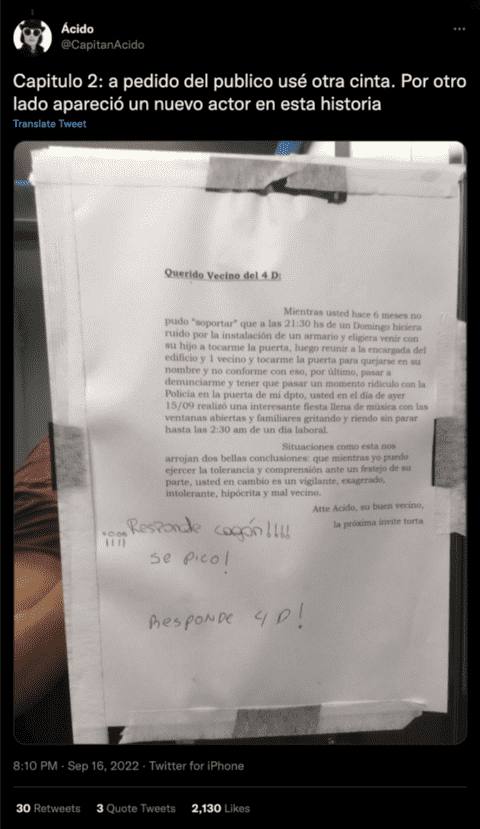 Ácido
@CapitanAcido
Capitulo 2: a pedido del publico usé otra cinta. Por otro
lado apareció un nuevo actor en esta historia
Translate Tweet
Querido Vecino del 4 D:
Mientras usted hace 6 meses no
pudo "soportar" que a las 21:30 hs de un Domingo hiciera
ruido por la instalación de un armario y eligiera venir con
su hijo a tocarme la puerta, luego reunir a la encargada del
edificio y 1 vecino y tocarme la puerta para quejarse en su
nombre y no conforme con eso, por último, pasar a
denunciarme y tener que pasar un momento ridículo con la
Policia en la puerta de mi dpto, usted en el día de ayer
15/09 realizó una interesante fiesta llena de música con las
ventanas abiertas y familiares gritando y riendo sin parar
hasta las 2:30 am de un día laboral.
Situaciones como esta nos
arrojan dos bellas conclusiones: que mientras yo puedo
ejercer la tolerancia y comprensión ante un festejo de su
parte, usted en cambio es un vigilante, exagerado,
intolerante, hipócrita y mal vecino.
Atte Acido, su buen vecino,
la próxima invite torta
Responde cagón!!!!
se pico!
Responde 4 D!
8:10 PM · Sep 16, 2022 · Twitter for iPhone
30 Retweets 3 Quote Tweets 2,130 Likes